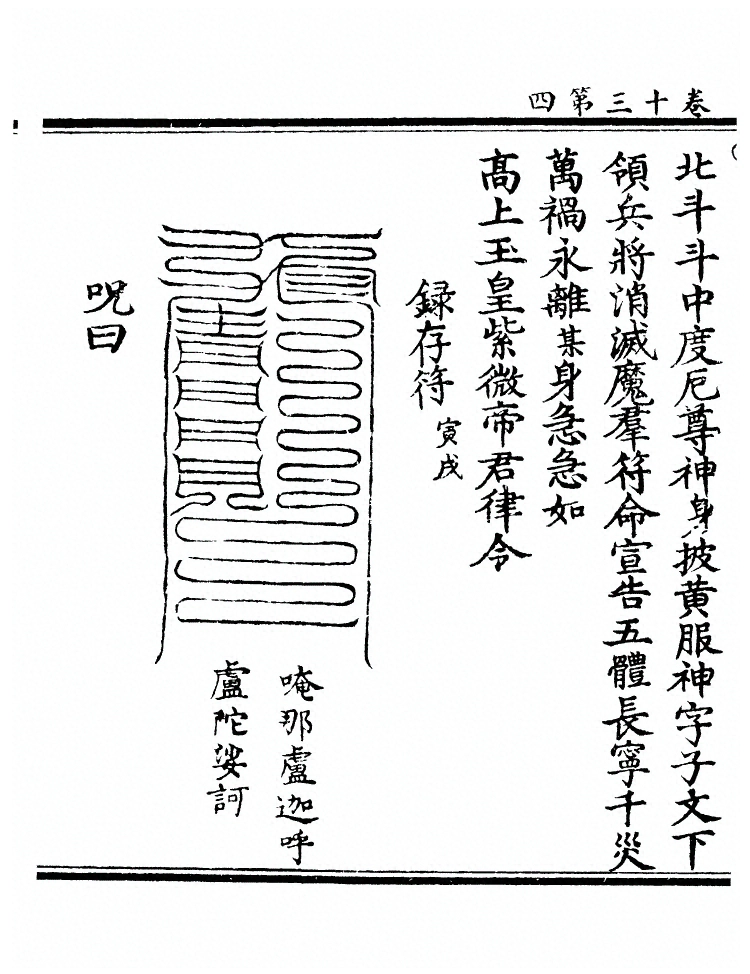 卷十三第四
北斗斗中度厄尊神身披黄服神字子文下
領兵將消滅魔羣符命宣告五體長寧千災
萬禍永離某身急急如
髙上玉皇紫微帝君律令
録存符寅戌
唵那盧迦呼
盧陀娑訶
呪曰